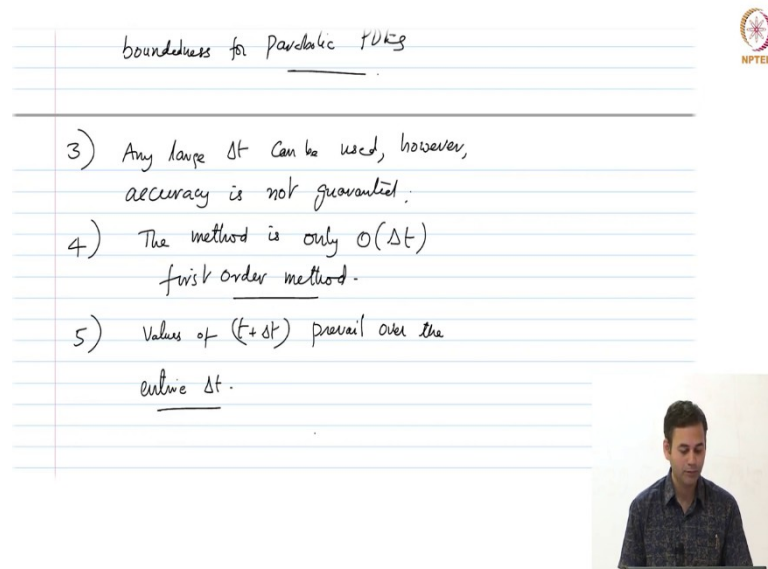 boundedness for Parabolic PDEs
NPTEL
3) Any large Δt can be used, however,
accuracy is not guarantied.
4) The method is only O(Δt)
first order method.
5) Values of (t+Δt) prevail over the
entire Δt.